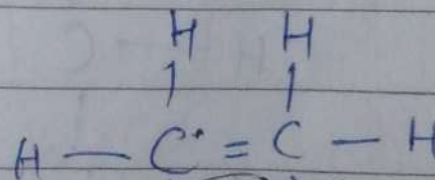 H H
| |
H — C = C — H